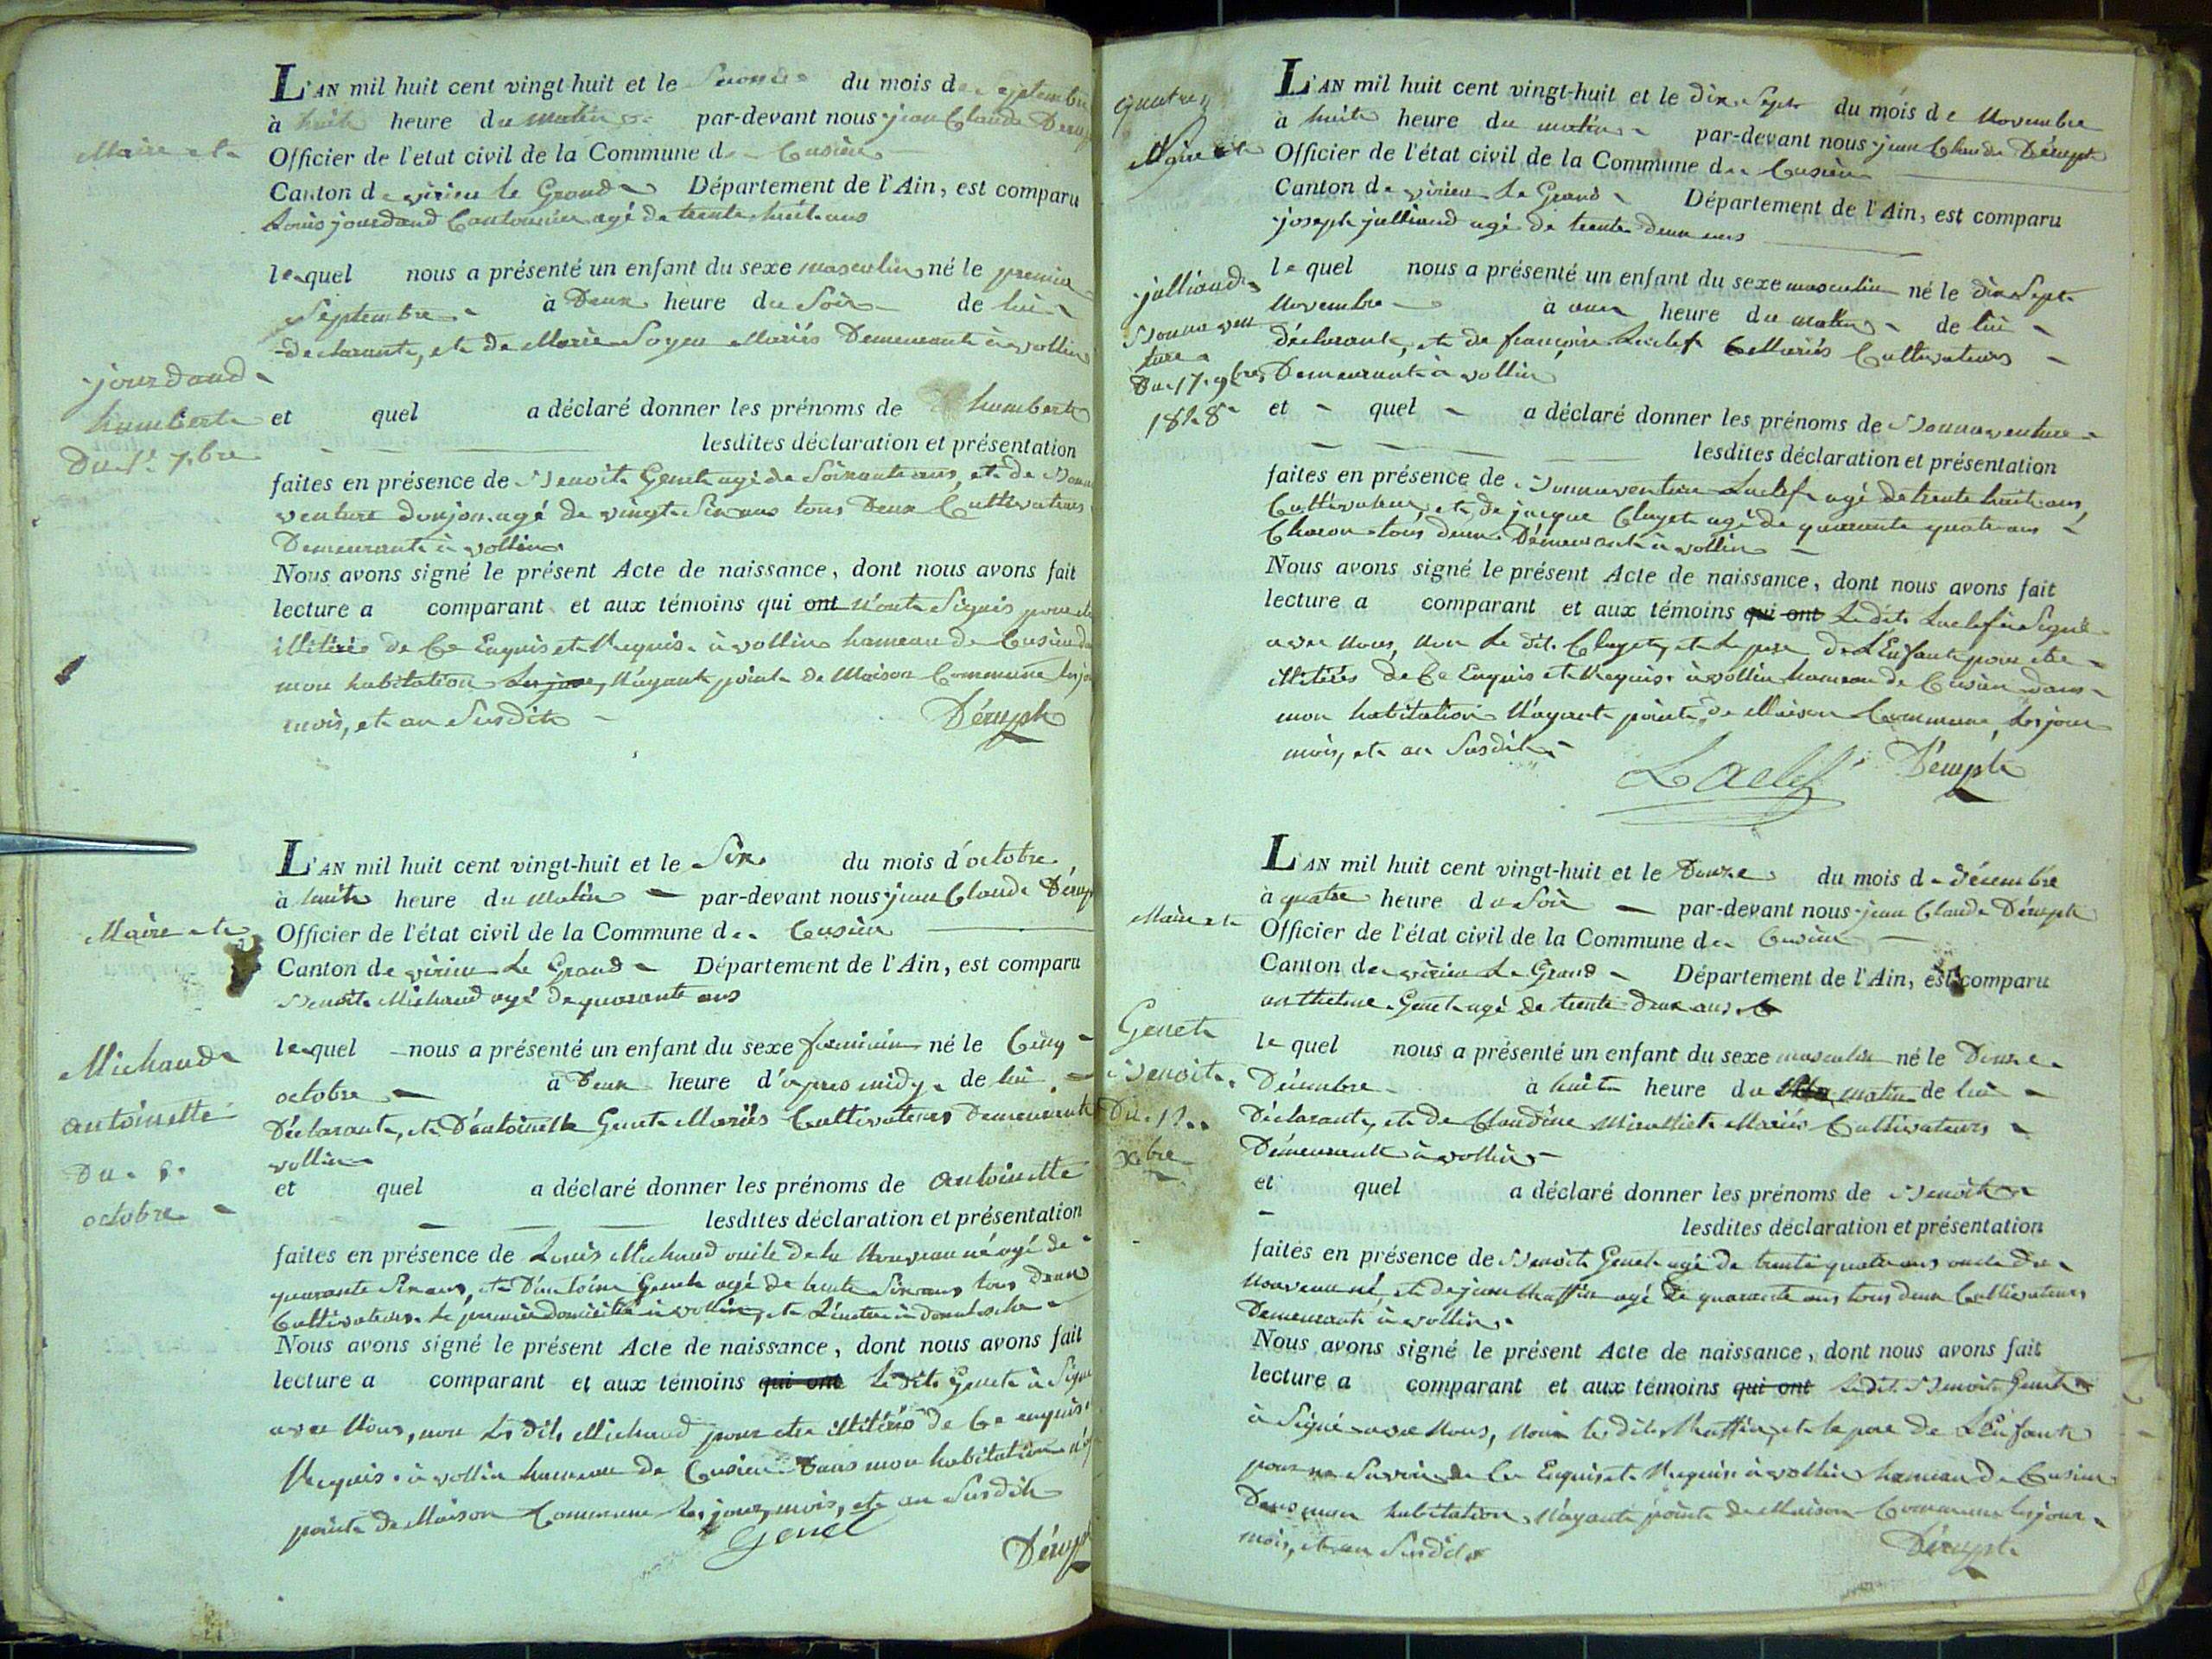 L'AN mil huit cent vingt-huit et le Second du mois de Septembre
à huit heure du matin par-devant nous jean Claude
Maire et
Officier de l'etat civil de la Commune de Cusieu
Canton de virieu le Grand Département de l'Ain, est comparu
Louis jourdand Cantonnier agé de trente huit ans
lequel nous a présenté un enfant du sexe masculin né le premier
Septembre à Deux heure du Soir de lui
declarant, et de Marie Mariés Demeurant à vollin
jourdand
humbert
Du 1r 7bre
et quel a déclaré donner les prénoms de humbert
lesdites déclaration et présentation
faites en présence de Benoit Genet agé de Soixante ans, et de Bonna
venture donjon agé de vingt Six ans tous Deux Cultivateurs
Demeurant à vollin
Nous avons signé le présent Acte de naissance, dont nous avons fait
lecture a comparant et aux témoins qui ont n'ont Signés pour etre
illitérés de Ce Enquis et Requis. à vollin hameau de Cusieu
mon habitation N'ayant point de Maison Commune les jour
mois, et an Susdit
Dérupt
L'AN mil huit cent vingt-huit et le Six du mois d'octobre
à huit heure du matin par-devant nous jean Claude
Maire et
Officier de l'état civil de la Commune de Cusieu
Canton de virieu Le Grand Département de l'Ain, est comparu
Benoit Michaud agé de quarante ans
lequel nous a présenté un enfant du sexe feminin né le Cinq
octobre à Deux heure d'apres midy de lui
Déclarant, et D'antoinette Genet Mariés Cultivateurs Demeurant
vollin
Michaud
antoinette
Du 5
octobre
et quel a déclaré donner les prénoms de antoinette
lesdites déclaration et présentation
faites en présence de Louis Michaud oncle de la Nouveau né agé de
quarante Six ans, et D'antoine Genet agé de trente Six ans tous deux
Cultivateurs Le premier domicilié à vollin, et L'autre à
Nous avons signé le présent Acte de naissance, dont nous avons fait
lecture a comparant et aux témoins qui ont Ledit Genet à Signé
avec Nous, non Les dits Michaud pour etre illitérés de Ce enquis
Requis. à vollin hameau de Cusieu Dans mon habitation
point de Maison Commune les jour, mois, et an Susdit
Genet
Dérupt
L'AN mil huit cent vingt-huit et le dix Sept du mois de Novembre
à huit heure du matin par-devant nous jean Claude Dérupt
Maire et
Officier de l'état civil de la Commune de Cusieu
Canton de virieu Le Grand Département de l'Ain, est comparu
joseph julliand agé de trente deux ans
lequel nous a présenté un enfant du sexe masculin né le dix Sept
Novembre à une heure du matin de lui
Déclarant, et de françoise Laclef Mariés Cultivateurs
Demeurant à vollin
julliand
Bonnaven
ture
Du 17 9bre
1828
et quel a déclaré donner les prénoms de Bonnaventure
lesdites déclaration et présentation
faites en présence de Bonnaventure Laclef agé de trente huit ans,
Cultivateur, et de jacque Cluget agé de quarante quatre ans
Charon tous deux Démeurant à vollin
Nous avons signé le présent Acte de naissance, dont nous avons fait
lecture a comparant et aux témoins qui ont Ledit Laclef à Signé
avec Nous, non Le dit Cluget, et Le pere de L'Enfant pour etre
illitérés de Ce Enquis et Requis. à vollin hameau de Cusieu dans
mon habitation N'ayant point de Maison Commune, Les jour
mois, et an Susdit
Laclef Dérupt
L'AN mil huit cent vingt-huit et le Douze du mois de décembre
à quatre heure du Soir par-devant nous jean Claude Dérupt
Maire et
Officier de l'état civil de la Commune de Cusieu
Canton de virieu Le Grand Département de l'Ain, est comparu
anthelme Genet agé de trente deux ans
lequel nous a présenté un enfant du sexe masculin né le Douze
Décembre à huit heure du matin de lui
Déclarant, et de Claudine Mariés Cultivateurs
Démeurant à vollin
Genet
Benoit
Du 12
Xbre
et quel a déclaré donner les prénoms de Benoit
lesdites déclaration et présentation
faites en présence de Benoit Genet agé de trente quatre ans oncle du
Nouveau né, et de jean Maffin agé de quarante ans tous deux Cultivateurs
Demeurant à vollin
Nous avons signé le présent Acte de naissance, dont nous avons fait
lecture a comparant et aux témoins qui ont Ledit Benoit Genet
à Signé avec Nous, Non le dit Maffin, et le pere de L'Enfant
pour ne Savoir de Ce Enquis et Requis à vollin hameau de Cusieu
Dans mon habitation, N'ayant point de Maison Commune les jour
mois, et an Susdit
Dérupt